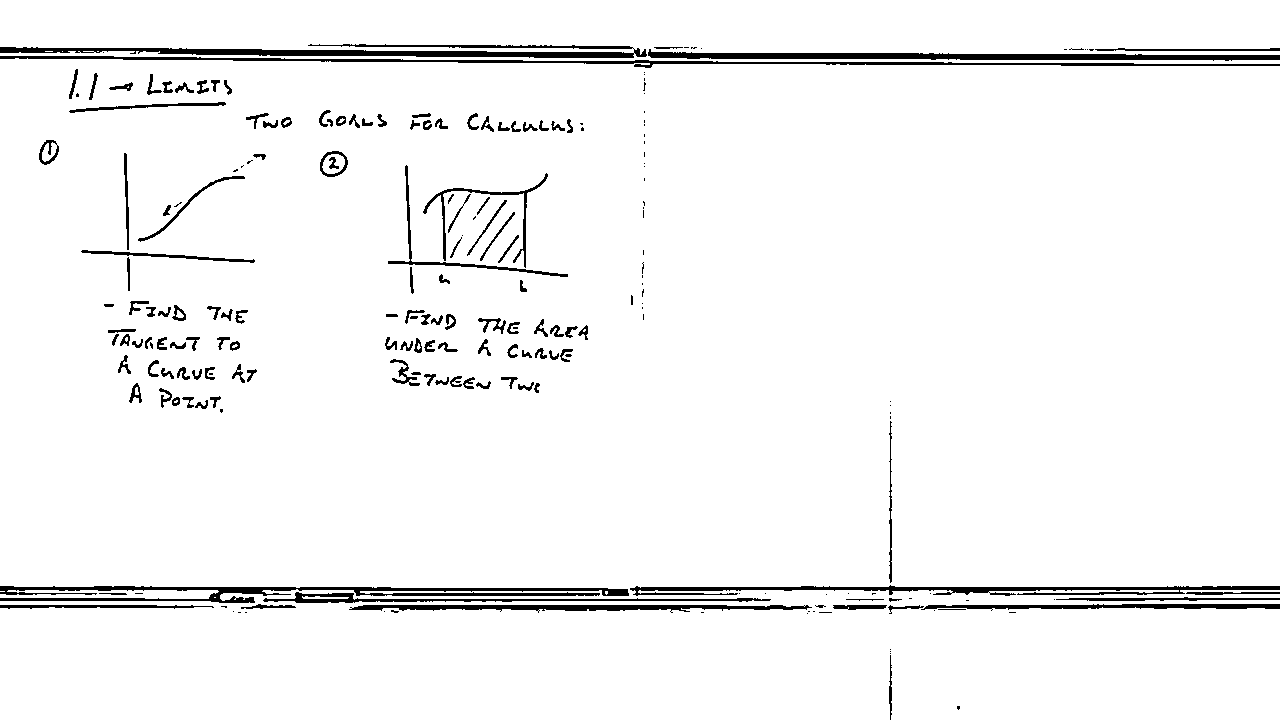 1.1 → LIMITS
TWO GOALS FOR CALCULUS:
①
②
a b
- FIND THE
TANGENT TO
A CURVE AT
A POINT.
- FIND THE AREA
UNDER A CURVE
BETWEEN TWO